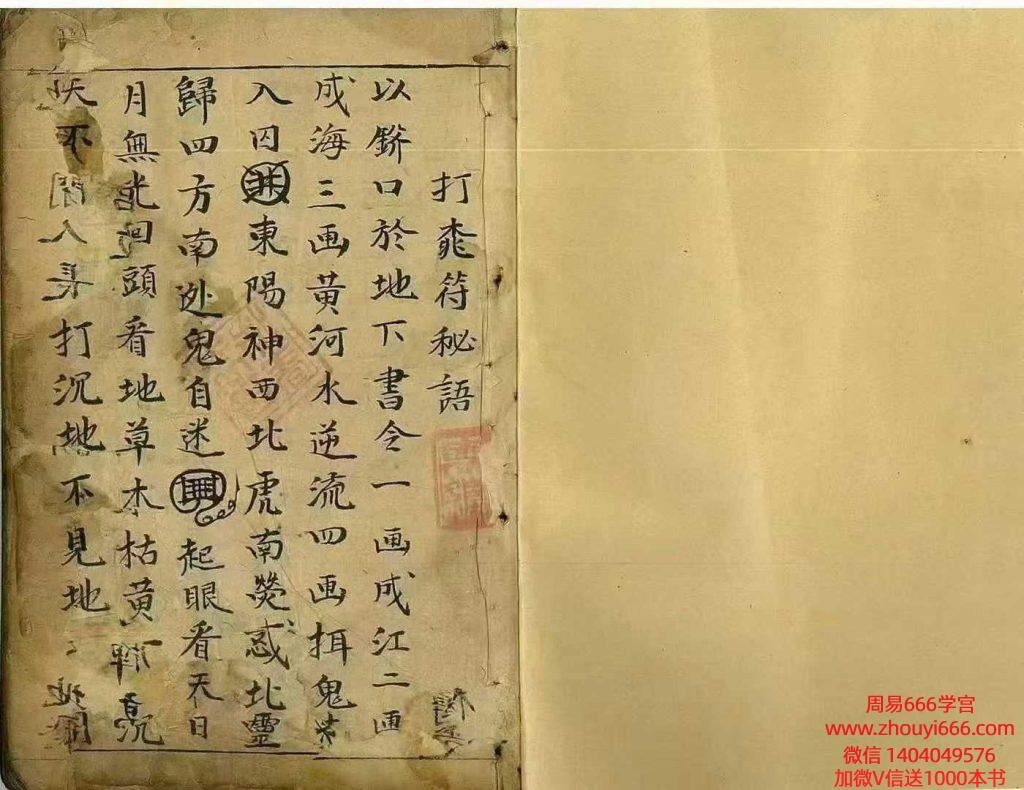 打符秘語
以口於地下書令一画成江二画
成海三画黄河水逆流四画鬼
入囚東陽神西北虎南熒惑北靈
歸四方南处鬼自迷起眼看天日
月無光回頭看地草木枯黄沉
天不開人長打沉地不見地
周易666学宫
www.zhouyi666.com
微信 1404049576
加微V信送1000本书